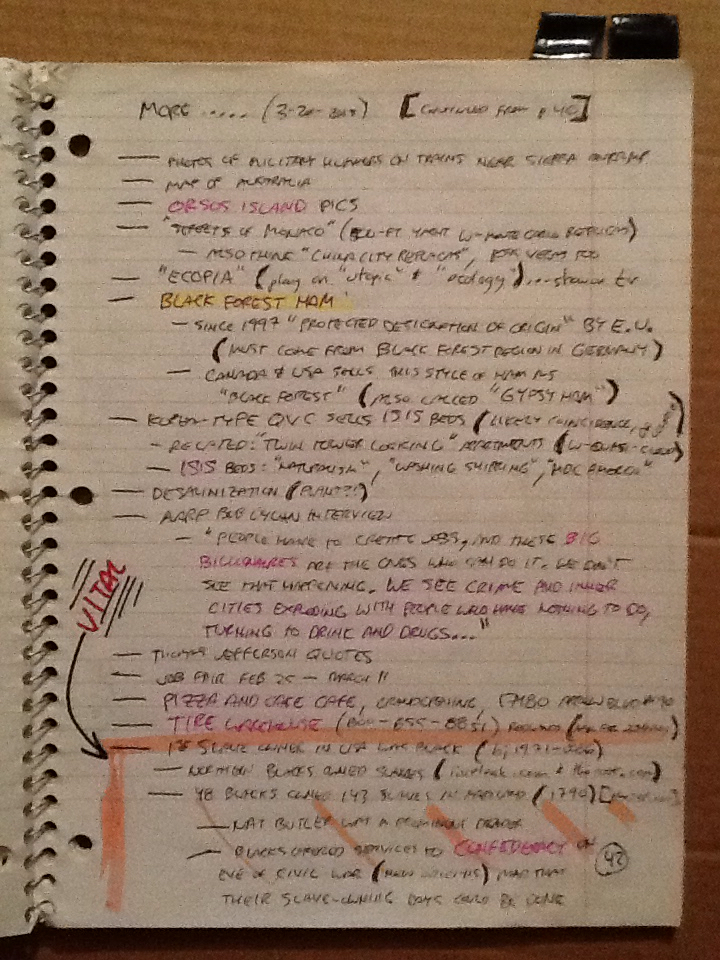 MORE ..... (3-20-2015) [CONTINUED FROM p 40]
— PHOTOS OF MILITARY HUMVEES ON TRAINS NEAR SIERRA
— MAP OF AUSTRALIA
— ORSOS ISLAND PICS
— "STREETS OF MONACO" (500-FT YACHT W-MONTE CARLO REPLICAS)
— ALSO THINK "CHINA CITY REPLICAS", VEGAS TOO
— "ECOPIA" (play on "utopia" & "ecology")...
— BLACK FOREST HAM
— SINCE 1997 "PROTECTED DESIGNATION OF ORIGIN" BY E.U.
(MUST COME FROM BLACK FOREST REGION IN GERMANY)
— CANADA & USA SELLS THIS STYLE OF HAM AS
"BLACK FOREST" (ALSO CALLED "GYPSY HAM")
— KOREA-TYPE QVC SELLS ISIS BEDS (LIKELY COINCIDENCE,
— RELATED: "TWIN TOWER LOOKING" APARTMENTS (W-QUASI-CLOUD)
— ISIS BEDS: "NATURALISM", "WASHING SHIPPING",
— DESALINIZATION (PLANT?!)
— AARP BOB DYLAN INTERVIEW
— "PEOPLE HAVE TO CREATE JOBS, AND THESE BIG
BILLIONAIRES ARE THE ONES WHO CAN DO IT. WE DON'T
SEE THAT HAPPENING. WE SEE CRIME AND INNER
CITIES EXPLODING WITH PEOPLE WHO HAVE NOTHING TO DO,
TURNING TO DRINK AND DRUGS..."
VITAL
— THOMAS JEFFERSON QUOTES
— JOB FAIR FEB 25 — MARCH 11
— PIZZA AND CAKE CAFE,
— TIRE WAREHOUSE
— 1ST SLAVE OWNER IN USA WAS BLACK
— NORTHERN BLACKS OWNED SLAVES
— 48 BLACKS OWNED 143 SLAVES IN MARYLAND (1790)
— NAT BUTLER WAS A PROMINENT TRADER
— BLACKS OFFERED SERVICES TO CONFEDERACY ON
EVE OF CIVIL WAR (NEW ORLEANS) THAT
THEIR SLAVE-OWNING DAYS COULD BE DONE
42